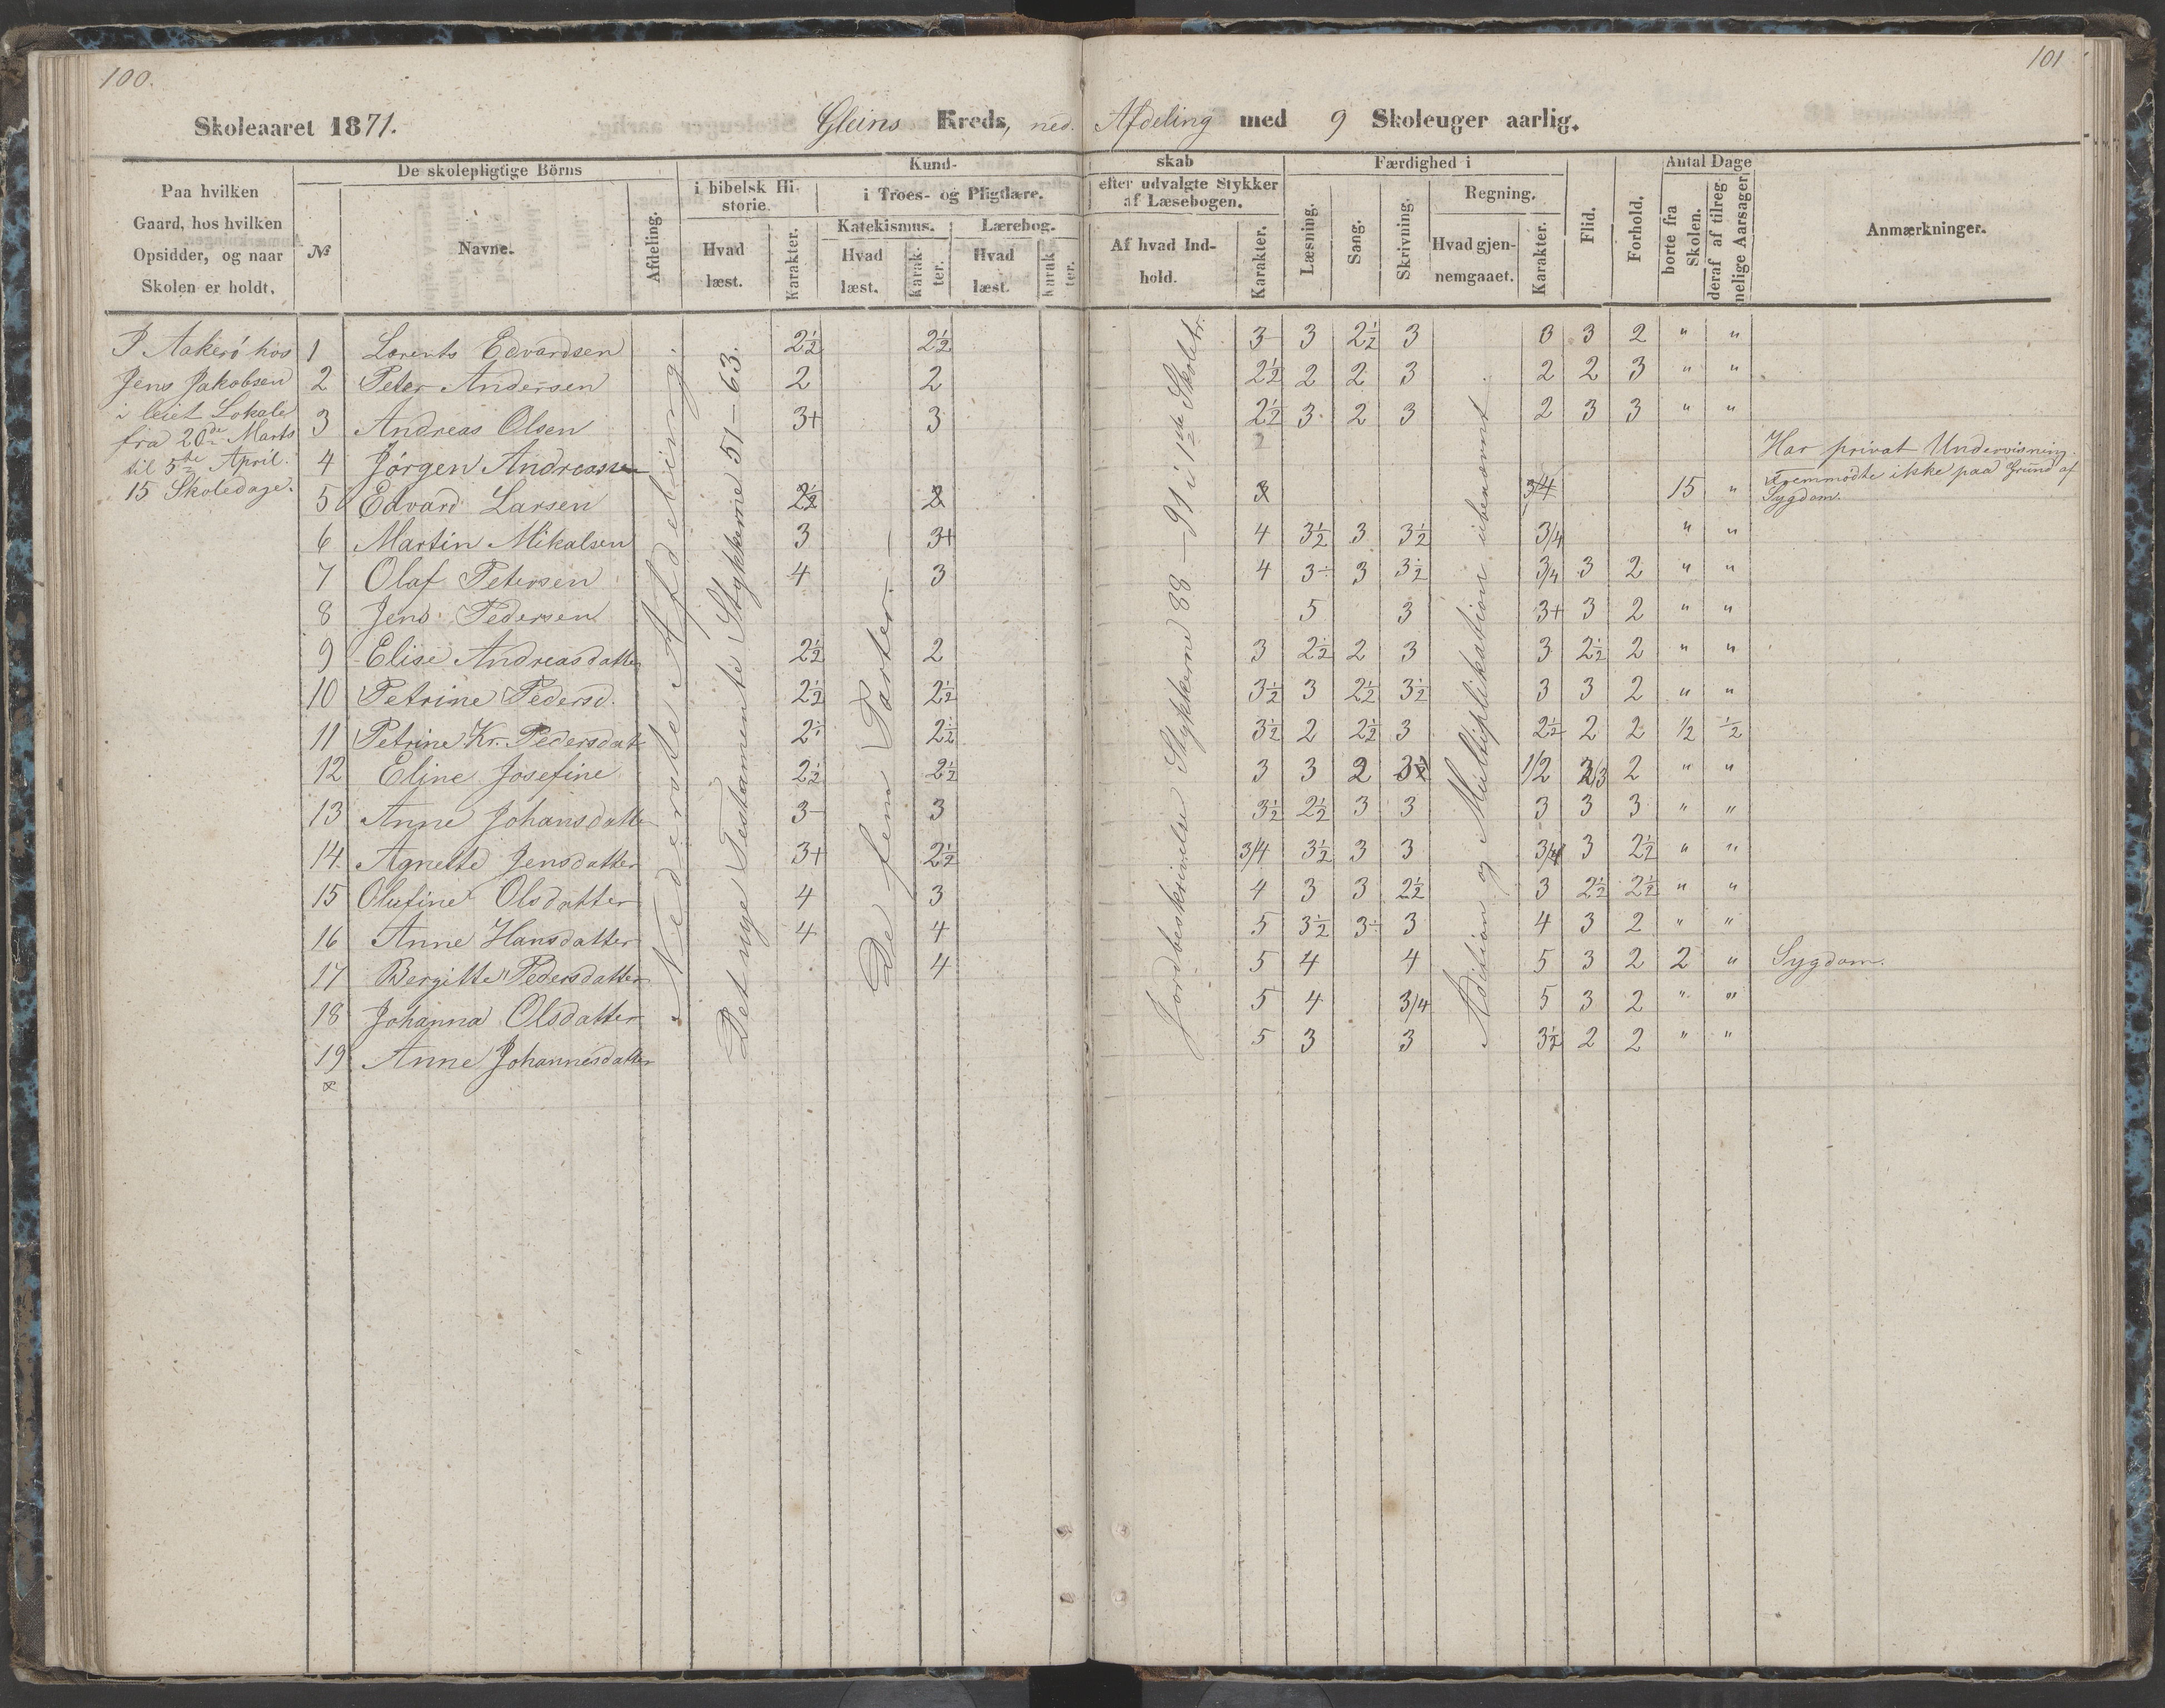 100.
101
Skoleaaret 1871.
Gleins Kreds, ned. Afdeling med 9 Skoleuger aarlig.
Paa hvilken Gaard, hos hvilken Opsidder, og naar Skolen er holdt.
De skolepligtige Börns
№
Navne.
Afdeling.
Kundskab
i bibelsk Historie.
Hvad læst.
Karakter.
i Troes- og Pligtlære.
Katekismus.
Hvad læst.
Karakter.
Lærebog.
Hvad læst.
Karakter.
efter udvalgte Stykker af Læsebogen.
Af hvad Indhold.
Karakter.
Færdighed i
Læsning.
Sang.
Skrivning.
Regning.
Hvad gjennemgaaet.
Karakter.
Flid.
Forhold.
Antal Dage
borte fra Skolen.
deraf af tilregnelige Aarsager
Anmærkninger.
P Aakerö hos
Jens Jakobsen
i leiet Lokale
fra 20de Marts
til 5te April.
15 Skoledage.
Nederste Afdeling.
Det nye Testamente Stykkerne 51-63.
De fem Parter.
Jordbeskrivelse Stykkerne 88-91 i 1ste Skoletr.
Adition og Multiplikation ubenævnt
1 Lorents Edvardsen 2½ 2½ 3 3 2½ 3 3 3 2 " "
2 Peter Andersen 2 2 2½ 2 2 3 2 2 3 " "
3 Andreas Olsen 3+ 3 2½ 3 2 3 2 3 3 " "
4 Jörgen Andreassen Har privat Undervisning.
5 Edvard Larsen 3/4 15 " Fremmödte ikke paa Grund af Sygdom.
6 Martin Mikalsen 3 3+ 4 3½ 3 3½ 3/4 " "
7 Olaf Petersen 4 3 4 3÷ 3 3½ 3/4 3 2 " "
8 Jens Pedersen 5 3 3+ 3 2 " "
9 Elise Andreasdatter 2½ 2 3 2½ 2 3 3 2½ 2 " "
10 Petrine Pedersd. 2½ 2½ 3½ 3 2½ 3½ 3 3 2 " "
11 Petrine Kr. Pedersdat 2÷ 2½ 3½ 2 2½ 3 2½ 2 2 ½ ½
12 Eline Josefine 2½ 2½ 3 3 2 3 1/2 2/3 2 " "
13 Anne Johansdatter 3- 3 3½ 2½ 3 3 3 3 3 " "
14. Agnette Jensdatter 3+ 2½ 3/4 3½ 3 3 3/4 3 2½ " "
15 Olufine Olsdatter 4 3 4 3 3 2½ 3 2½ 2½ " "
16 Anne Hansdatter 4 4 5 3½ 3÷ 3 4 3 2 " "
17 Bergitte Pedersdatter 4 5 4 4 5 3 2 2 " Sygdom.
18 Johanna Olsdatter 5 4 3/4 5 3 2 " "
19 Anne Johannesdatter 5 3 3 3½ 2 2 " "